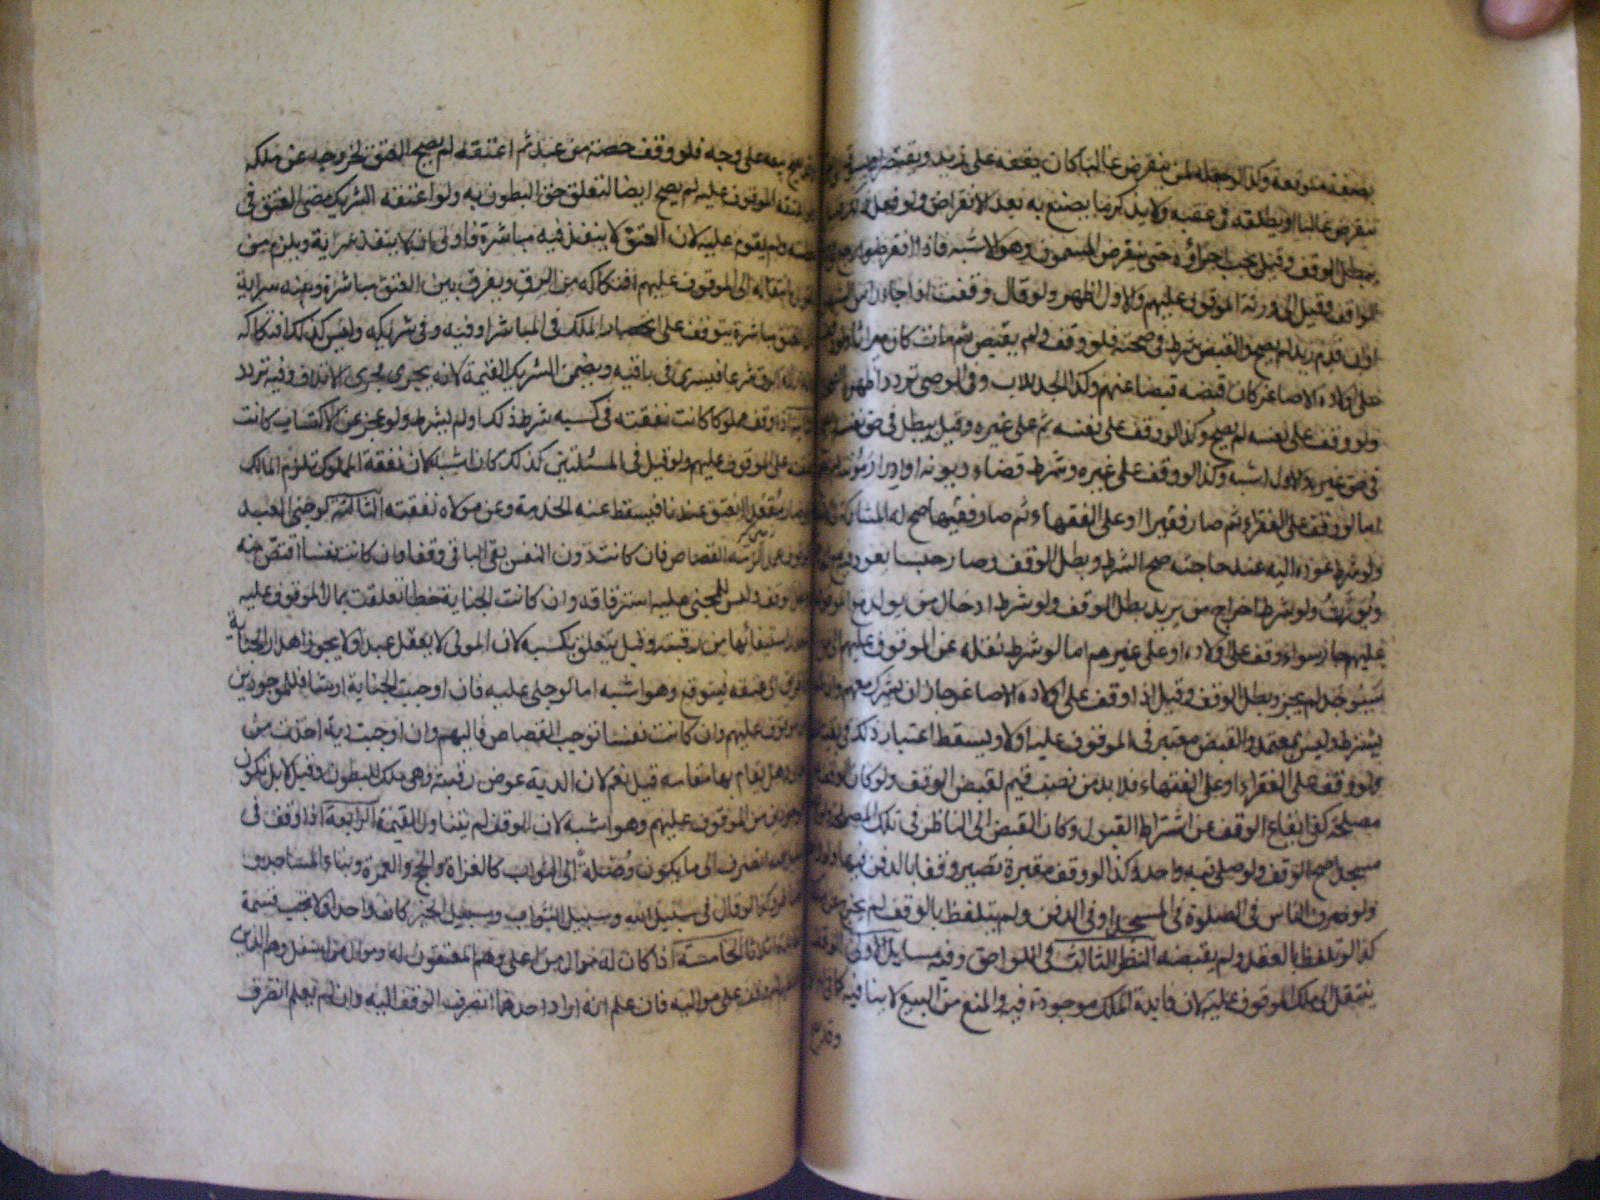 بصفة متوقعة وكذا لو جعله لمن ينقرض غالبا كان يقفه على زيد ويقتصر او يسوقه
ينقرض غالبا او يطلقه في عقبه ولا يذكر ما يصنع به بعد الانقراض ولو فعل ذلك قيل
يبطل الوقف وقيل يجب اجراؤه حتى ينقرض المسمون وهو الاشبه فاذا انقرضوا رجع
الواقف وقيل الى ورثة الموقوف عليهم والاول اظهر ولو قال وقفت اذا جاء راس الشهر
او ان قدم زيد لم يصح والقبض شرط في صحته فلو وقف ولم يقبض ثم مات كان ميراثا ولو
على اولاده الاصاغر كان قبضه قبضا عنهم وكذا الجد للاب وفي الوصي تردد اظهره
ولو وقف على نفسه لم يصح وكذا لو وقف على نفسه ثم على غيره وقيل يبطل في حق نفسه
في حق غيره والاول اشبه وكذا لو وقف على غيره وشرط قضاء ديونه او ادرار مؤنته
اما لو وقف على الفقراء ثم صار فقيرا او على الفقهاء ثم صار فقيها صح له المشاركة
ولو شرط عوده اليه عند حاجته صح الشرط وبطل الوقف وصار حبسا يعود
ويورث ولو شرط اخراج من يريد بطل الوقف ولو شرط ادخال من يولد مع الموقوف
عليهم جاز سواء وقف على اولاده او على غيرهم اما لو شرط نقله عن الموقوف عليهم
سيوجد لم يجز وبطل الوقف وقيل اذا وقف على اولاده الاصاغر جاز ان يشرك معهم وان
يشترط وليس بمعتمد والقبض معتبر في الموقوف عليه اولا ويسقط اعتبار ذلك في بقية
ولو وقف على الفقراء او على الفقهاء فلا بد من نصب قيم لقبض الوقف ولو كان الوقف
مصلحة كفى ايقاع الوقف عن اشتراط القبول وكان القبض الى الناظر في تلك المصلحة
مسجدا صح الوقف ولو صلى فيه واحد وكذا لو وقف مقبرة تصير وقفا بالدفن فيها ولو
ولو صرف الناس في الصلوة في المسجد او في الدفن ولم يتلفظ بالوقف لم يخرج عن
كذا لو تلفظ بالعقد ولم يقبضه النظر الثالث في اللواحق وفيه مسايل الاولى الوقف
ينتقل الى ملك الموقوف عليه لان فايدة الملك موجودة فيه والمنع من البيع لا ينافيه كما في
وقد يصح
يصح بيعه على وجه فلو وقف حصته من عبد ثم اعتقه لم يصح العتق لخروجه عن ملكه
اعتقه الموقوف عليه لم يصح ايضا لتعلق حق البطون به ولو اعتقه الشريك مضى العتق في
حصته ولم يقوم عليه لان العتق لا ينفذ فيه مباشرة فاولى ان لا ينفذ سراية ويلزم من
القول بانتقاله الى الموقوف عليهم افتكاكه من الرق ويفرق بين العتق مباشرة وبينه سراية
العتق مباشرة يتوقف على انحصار الملك في المباشر او فيه وفي شريكه وليس كذلك افتكاكه
ازالة الرق شرعا فيسرى في باقيه ويضمن الشريك القيمة لانه يجري مجرى الاتلاف وفيه تردد
اذا وقف مملوكا كانت نفقته في كسبه شرط ذلك او لم يشرط ولو عجز عن الاكتساب كانت
نفقته على الموقوف عليهم ولو قيل في المسئلتين كذلك كان اشبه لان نفقة المملوك تلزم المالك
صار مقعدا انعتق عندنا فيسقط عنه الخدمة وعن مولاه نفقته الثالثة لو جنى العبد
القصاص فان كانت دون النفس بقي الباقي وقفا وان كانت نفسا اقتص منه
الوقف وليس للمجني عليه استرقاقه وان كانت الجناية خطا تعلقت بمال الموقوف عليه
استيفائها من رقبته وقيل يتعلق بكسبه لان المولى لا يعقل عبدا ولا يجوز اهدار الجناية
عتقه ليتوقع وهو اشبه اما لو جنى عليه فان اوجبت الجناية ارشا فللموجودين
الموقوف عليهم وان كانت نفسا توجب القصاص فاليهم وان اوجبت دية اخذت من
وهل يقام بها مقامه قيل نعم لان الدية عوض رقبته وهي ملك للبطون وقيل لا بل تكون
للموجودين من الموقوف عليهم وهو اشبه لان الوقف لم يتناول القيمة الرابعة اذا وقف في
انصرف الى ما يكون وصلة الى الثواب كالغزاة والحج والعمرة وبناء المساجد و
وكذا لو قال في سبيل الله وسبيل الثواب وسبيل الخير كان واحدا ولا تجب قسمة
اثلاثا الخامسة اذا كان له موال من اعلى وهم المعتقون له وموال من اسفل وهم الذين
وقف على مواليه فان علم انه اراد احدهما انصرف الوقف اليه وان لم يعلم انصرف